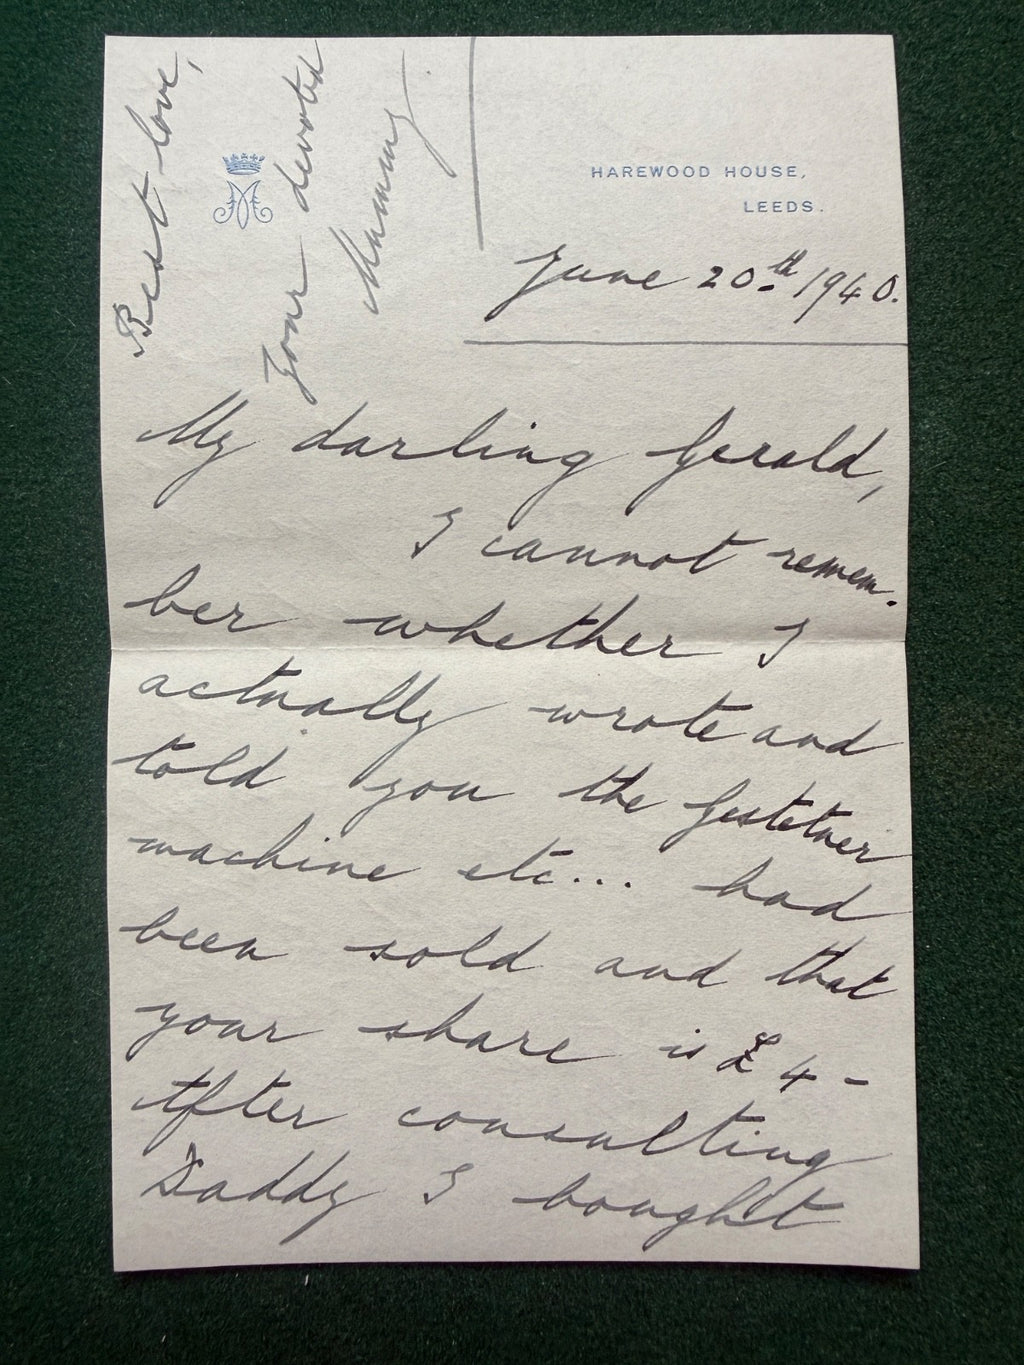 HAREWOOD HOUSE,
LEEDS.
June 20th 1940.
My darling Gerald,
I cannot remem-
ber whether I
actually wrote and
told you the Gestetner
machine etc... had
been sold and that
your share is £4-
After consulting
Daddy I bought
Best love,
Your devoted
Mummy.